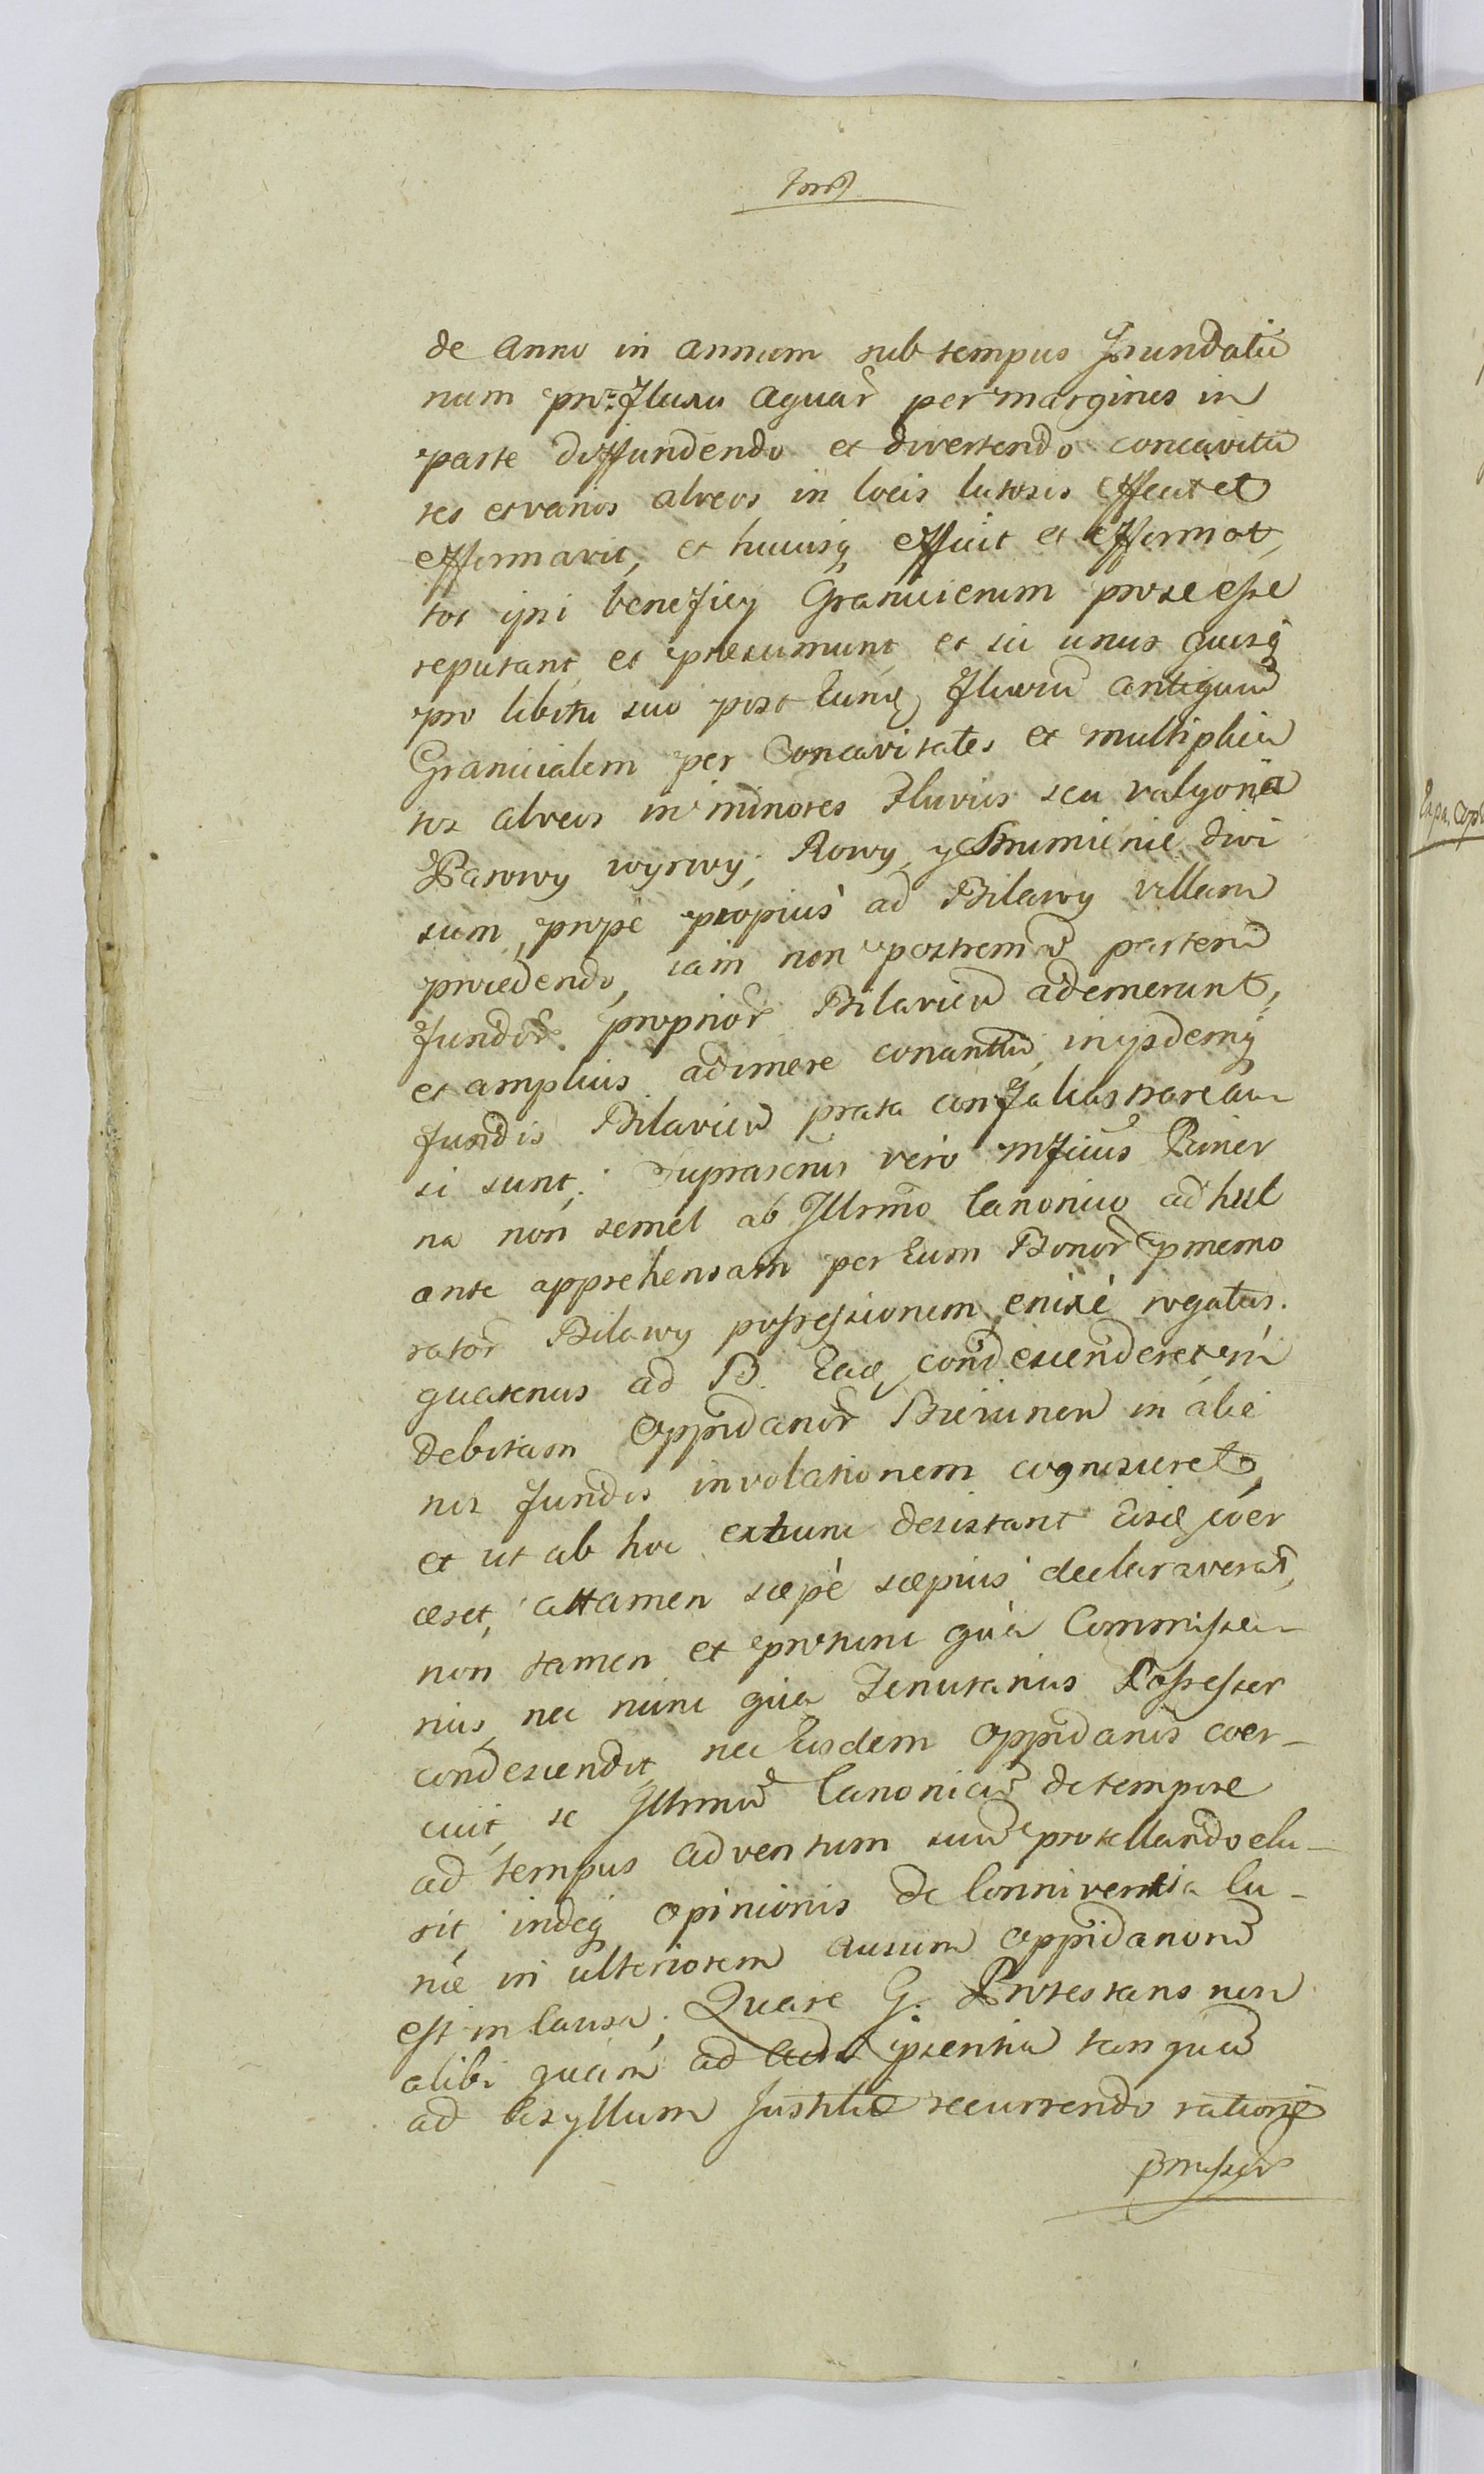 de Anno in annum sub tempus Inundatio
num pro Fluxu Aquar per margines in
parte diffundendo et divertendo concavita
tes et varios alveos in locis lutosis effecit et
efformavit, et hucusq efficit et efformat,
tot ipsi beneficÿ Granicierum pro se esse
reputant et praesumunt et sic unus quisq
pro libitu suo post Eunq Fluviu antiquu
Granicialem per Concavitates et multiplica
tos alveos in minores Fluvios seu valgo
Parowy wyrwy, Rowy, y Strumienie divi
sum, prope propius ad Bilawy villam
procedendo, iam non postrema partem
fundor proprior Bilavien ademerunt,
et amplius adimere conantur, in ijsdemq
fundis Bilavien prata confalcastrare au
si sunt. Suprascrus vero Mficus
na non semel ab Illrmo Canonico adhuc
ante apprehensam per Eum Bonor pmemo
rator Bilawy possessionem enixe rogatus.
quatenus ad B. Eaq condescenderet in
debitam Oppidanor in alie
nis fundis involationem cognosceret,
et ut ab hoc extunc desistant Eosq coer
ceret, attamen saepe saepius declaraverat,
non tamen et protunc qua Commissa-
rius, nec nunc qua Tenutarius Possessor
condescendit, nec Eosdem oppidanos coer-
cuit, se Illrmu Canonicu de tempore
ad tempus adventum suu protellando elu-
sit, indeq opinionis de Conniventia Cu-
riae in ulteriorem ausum oppidanoru
est in causa. Quare G. Protestans non
alibi quam ad Acta psentia tanqua
ad Asyllum Justitiae recurrendo ratione
pmissor